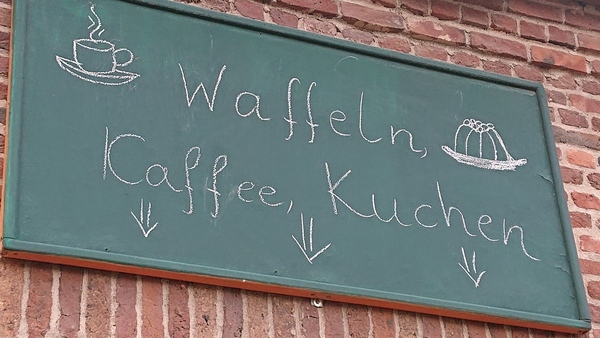 Waffeln,
Kaffee, Kuchen